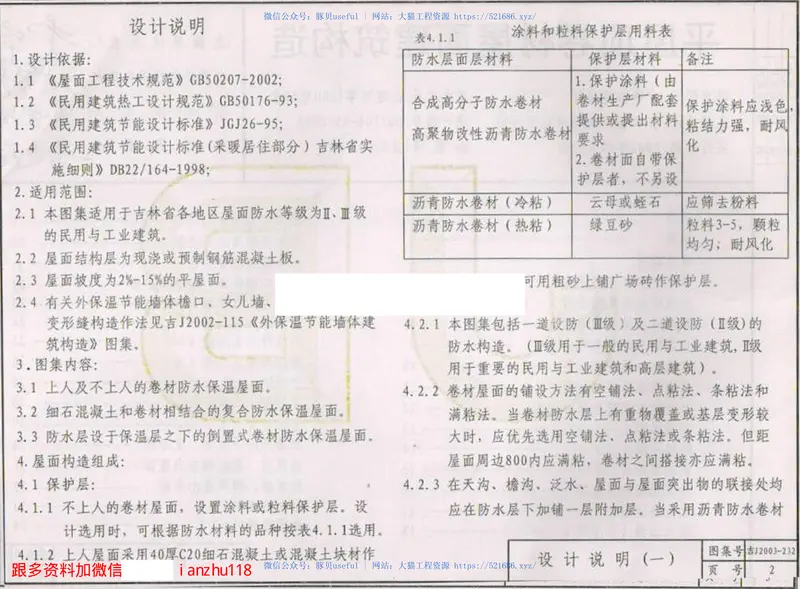 微信公众号：豚贝useful | 网站：大猫工程资源 https://521686.xyz/
设计说明
1.设计依据:
1.1 《屋面工程技术规范》GB50207-2002;
1.2 《民用建筑热工设计规范》GB50176-93;
1.3 《民用建筑节能设计标准》JGJ26-95;
1.4 《民用建筑节能设计标准(采暖居住部分)吉林省实
施细则》DB22/164-1998;
2.适用范围:
2.1 本图集适用于吉林省各地区屋面防水等级为Ⅱ、Ⅲ级
的民用与工业建筑。
2.2 屋面结构层为现浇或预制钢筋混凝土板。
2.3 屋面坡度为2%-15%的平屋面.
2.4 有关外保温节能墙体檐口、女儿墙、
变形缝构造作法见吉J2002-115《外保温节能墙体建
筑构造》图集.
3.图集内容:
3.1 上人及不上人的卷材防水保温屋面.
3.2 细石混凝土和卷材相结合的复合防水保温屋面.
3.3 防水层设于保温层之下的倒置式卷材防水保温屋面.
4.屋面构造组成:
4.1 保护层:
4.1.1 不上人的卷材屋面, 设置涂料或粒料保护层。设
计选用时, 可根据防水材料的品种按表4.1.1选用。
4.1.2 上人屋面采用40厚C20细石混凝土或混凝土块材作
表4.1.1 涂料和粒料保护层用料表
防水层面层材料 保护层材料 备注
合成高分子防水卷材
高聚物改性沥青防水卷材
1.保护涂料(由
卷材生产厂配套
提供或提出材料
要求
2.卷材面自带保
护层者, 不另设
保护涂料应浅色,
粘结力强, 耐风
化
沥青防水卷材(冷粘) 云母或蛭石 应筛去粉料
沥青防水卷材(热粘) 绿豆砂 粒料3-5, 颗粒
均匀, 耐风化
可用粗砂上铺广场砖作保护层.
4.2.1 本图集包括一道设防(Ⅲ级)及二道设防(Ⅱ级)的
防水构造。(Ⅲ级用于一般的民用与工业建筑,Ⅱ级
用于重要的民用与工业建筑和高层建筑)。
4.2.2 卷材屋面的铺设方法有空铺法、点粘法、条粘法和
满粘法。当卷材防水层上有重物覆盖或基层变形较
大时, 应优先选用空铺法、点粘法或条粘法。但距
屋面周边800内应满粘, 卷材之间搭接亦应满粘。
4.2.3 在天沟、檐沟、泛水、屋面与屋面突出物的联接处均
应在防水层下加铺一层附加层。当采用沥青防水卷材
设计说明(一)
图集号 吉J2003-232
页 号 2
跟多资料加微信 ianzhu118
微信公众号：豚贝useful | 网站：大猫工程资源 https://521686.xyz/